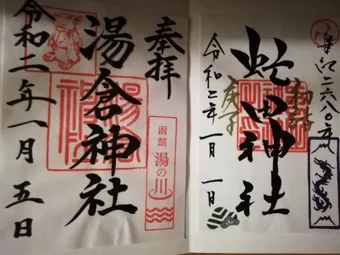 奉拝
湯倉神社
函館 湯の川
令和二年一月五日
皇紀二六八〇年
虻田神社
庚子
令和二年一月一日